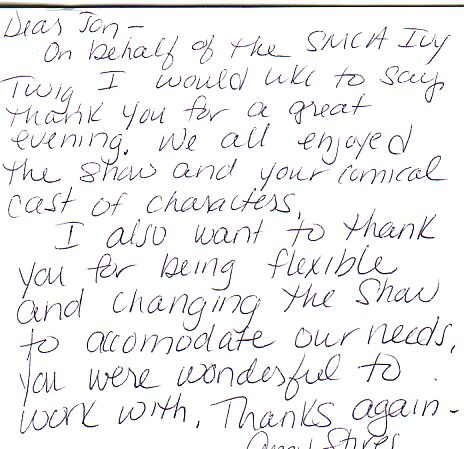 Dear Jon -
On behalf of the SMCA Ivy
Twig I would like to say
thank you for a great
evening. We all enjoyed
the show and your comical
cast of characters.
I also want to thank
you for being flexible
and changing the show
to accomodate our needs.
You were wonderful to
work with. Thanks again -